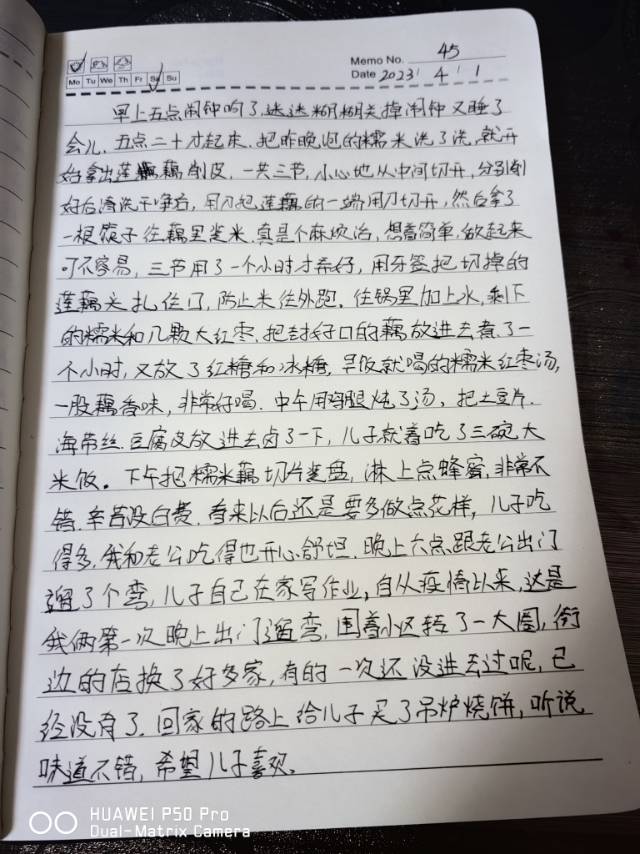 Memo No. 45
Mo Tu We Th Fr Sa Su
Date 2023 4 1
早上五点闹钟响了,迷迷糊糊关掉闹钟又睡了
会儿,五点二十才起床,把昨晚泡的糯米洗了洗,就开
好拿出莲藕削皮,一共三节,小心地从中间切开,分别削
好后清洗干净后,用刀把莲藕的一端用刀切开,然后拿了
一根筷子往藕里装米,真是个麻烦活,想着简单,做起来
可不容易,三节用了一个小时才弄好,用牙签把切掉的
莲藕头扎住口,防止米往外跑.往锅里加上水,剩下
的糯米和几颗大红枣,把封好口的藕放进去煮了一
个小时,又放了红糖和冰糖,早饭就喝的糯米红枣汤,
一股藕香味,非常好喝.中午用鸡腿炖了汤,把土豆片.
海带丝.豆腐皮放进去卤了一下,儿子就着吃了三碗大
米饭。下午把糯米藕切片装盘,淋上点蜂蜜,非常不
错.辛苦没白费.看来以后还是要多做点花样,儿子吃
得多,我和老公吃得也开心舒坦.晚上六点跟老公出门
遛了个弯,儿子自己在家写作业,自从疫情以来,这是
我俩第一次晚上出门遛弯,围着小区转了一大圈,街
边的店换了好多家,有的一次还没进去过呢,已
经没有了.回家的路上给儿子买了吊炉烧饼,听说
味道不错,希望儿子喜欢。
HUAWEI P50 Pro
Dual-Matrix Camera